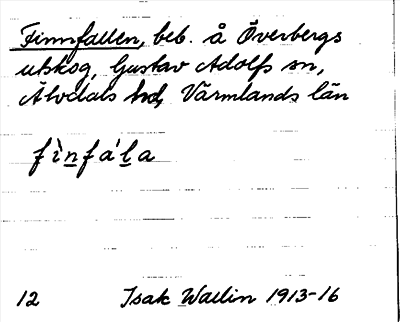 Finnfallen, beb. å Överbergs
utskog, Gustav Adolfs sn,
Älvdals hd, Värmlands län
fìnfála
12 Isak Wallin 1913-16